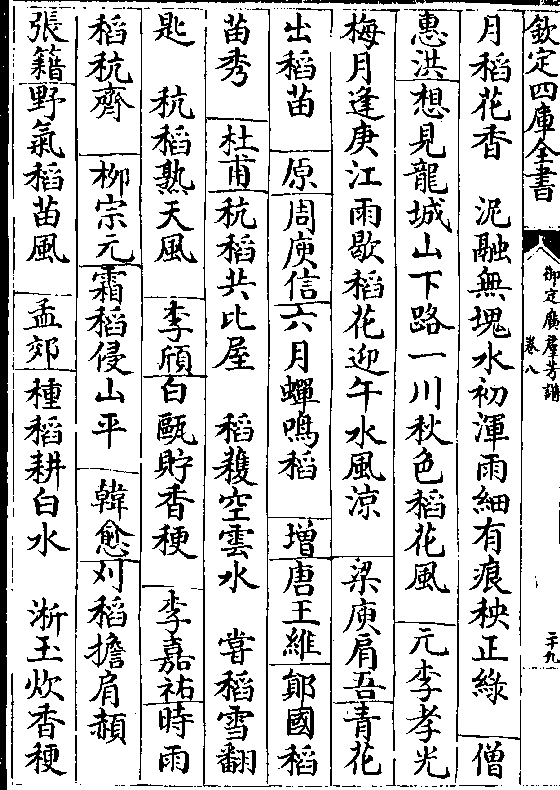 欽定四庫全書
御定廣羣芳譜
卷八
二十九
月稻花香　泥融無塊水初渾雨細有痕秧正綠　僧
惠洪想見龍城山下路一川秋色稻花風　元李孝光
梅月逢庚江雨歇稻花迎午水風涼　梁庾肩吾青花
出稻苗　原周庾信六月蟬鳴稻　增唐王維鄖國稻
苗秀　杜甫秔稻共比屋　稻穫空雲水　嘗稻雪翻
匙　秔稻熟天風　李頎白甌貯香稉　李嘉祐時雨
稻秔齊　柳宗元霜稻侵山平　韓愈刈稻擔肩赬
張籍野氣稻苗風　孟郊種稻耕白水　淅玉炊香稉